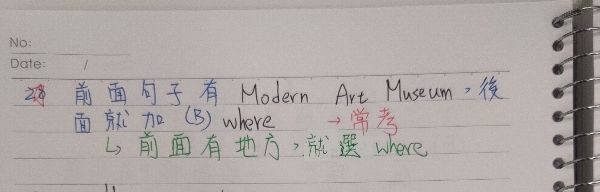 No:
Date: /
28 前面句子有 Modern Art Museum，後
面就加 (B) where → 常考
↳ 前面有地方，就選 where